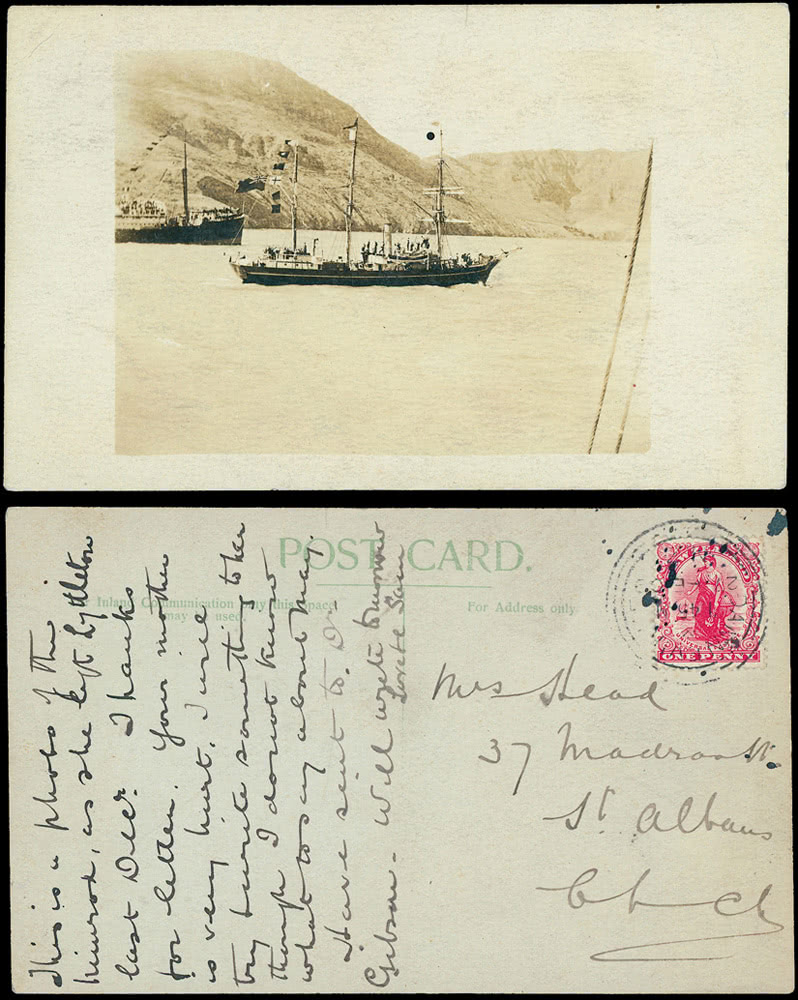 POST CARD.
Inland Communication may this space
may be used.
For Address only.
ONE PENNY
This is a photo of the
Nimrod, as she left Lyttleton
last Decr. Thanks
for letter. Your mother
is very hurt. I will
try & write something to her
though I do not know
what to say about May.
Have sent to Dr.
Gibson - Will write tomorrow
Mrs Head
37 Madras St.
St Albans
Ch Ch